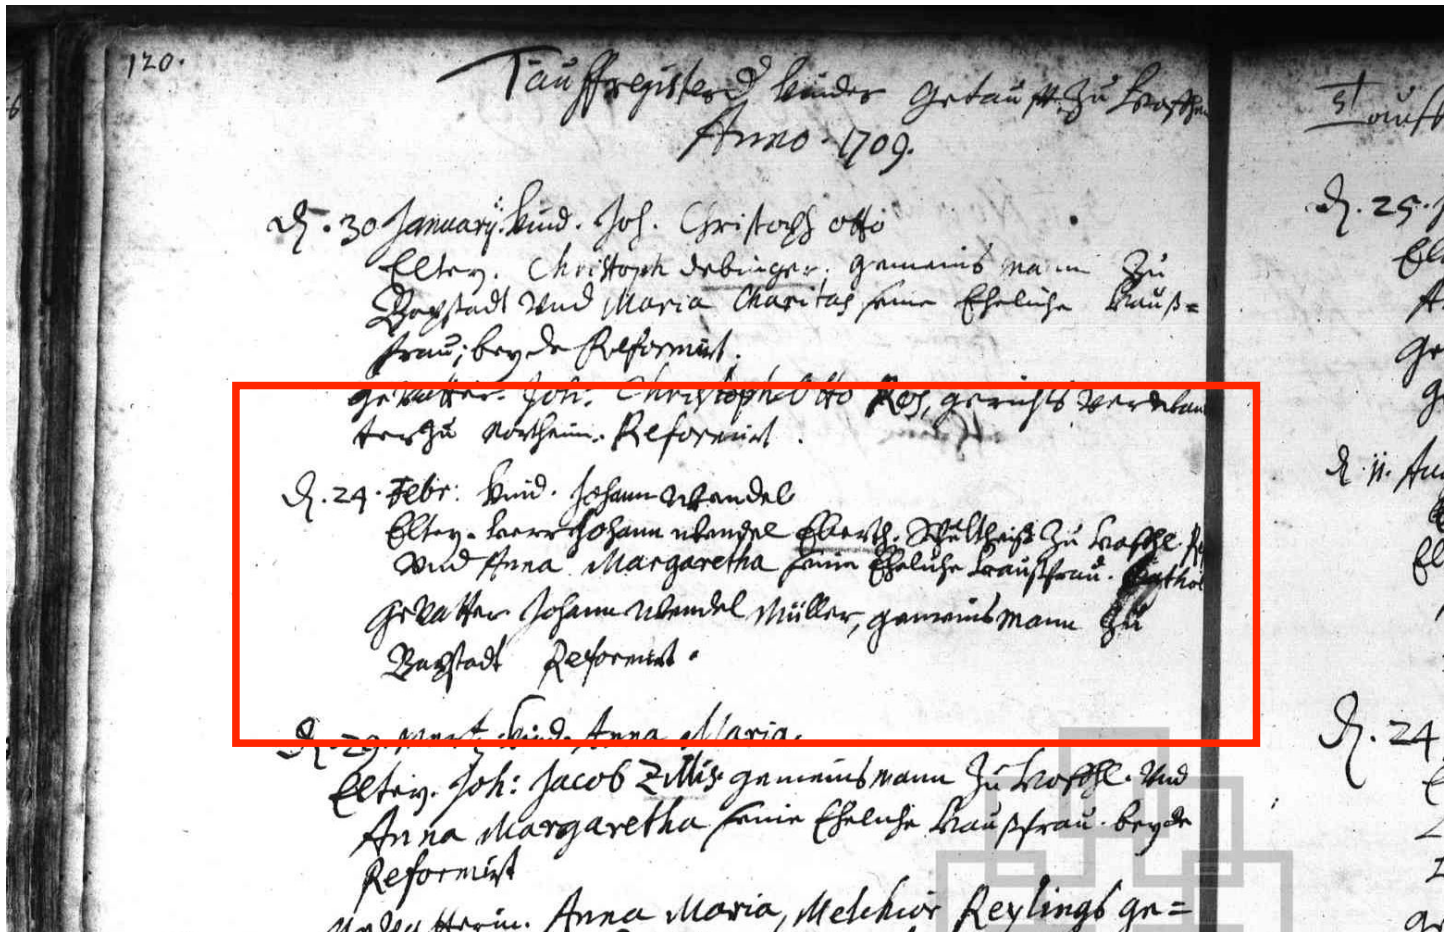 120.
Tauffregister d Kinder getaufft zu
Anno 1709.
d. 30 Januarij. Kind. Joh. Christoph otto
Eltern. Christoph debinger. gemeins mann zu
Baystadt und Maria Charitas seine Eheliche Hauß=
frau; beyde Reformirt.
gevatter. Joh: Christoph Otto Ros, gerichts verwan
ter zu Northeim. Reformirt.
d. 24. Febr: Kind. Johann Wendel
Eltern. Herr Johann Wendel Eberth. Schultheiß zu
und Anna Margaretha seine Eheliche Haußfrau. Cathol
gevatter Johann Wendel Müller, gemeinsmann zu
Baystadt Reformirt.
d. 29. Mertz. Kind. Anna Maria.
Eltern. Joh: Jacob Zillis gemeinsmann zu und
Anna Margaretha seine Eheliche Haußfrau. beyde
Reformirt
Anna Maria, Melchior Reylings ge=
d. 25.
d. 11. Au
d. 24